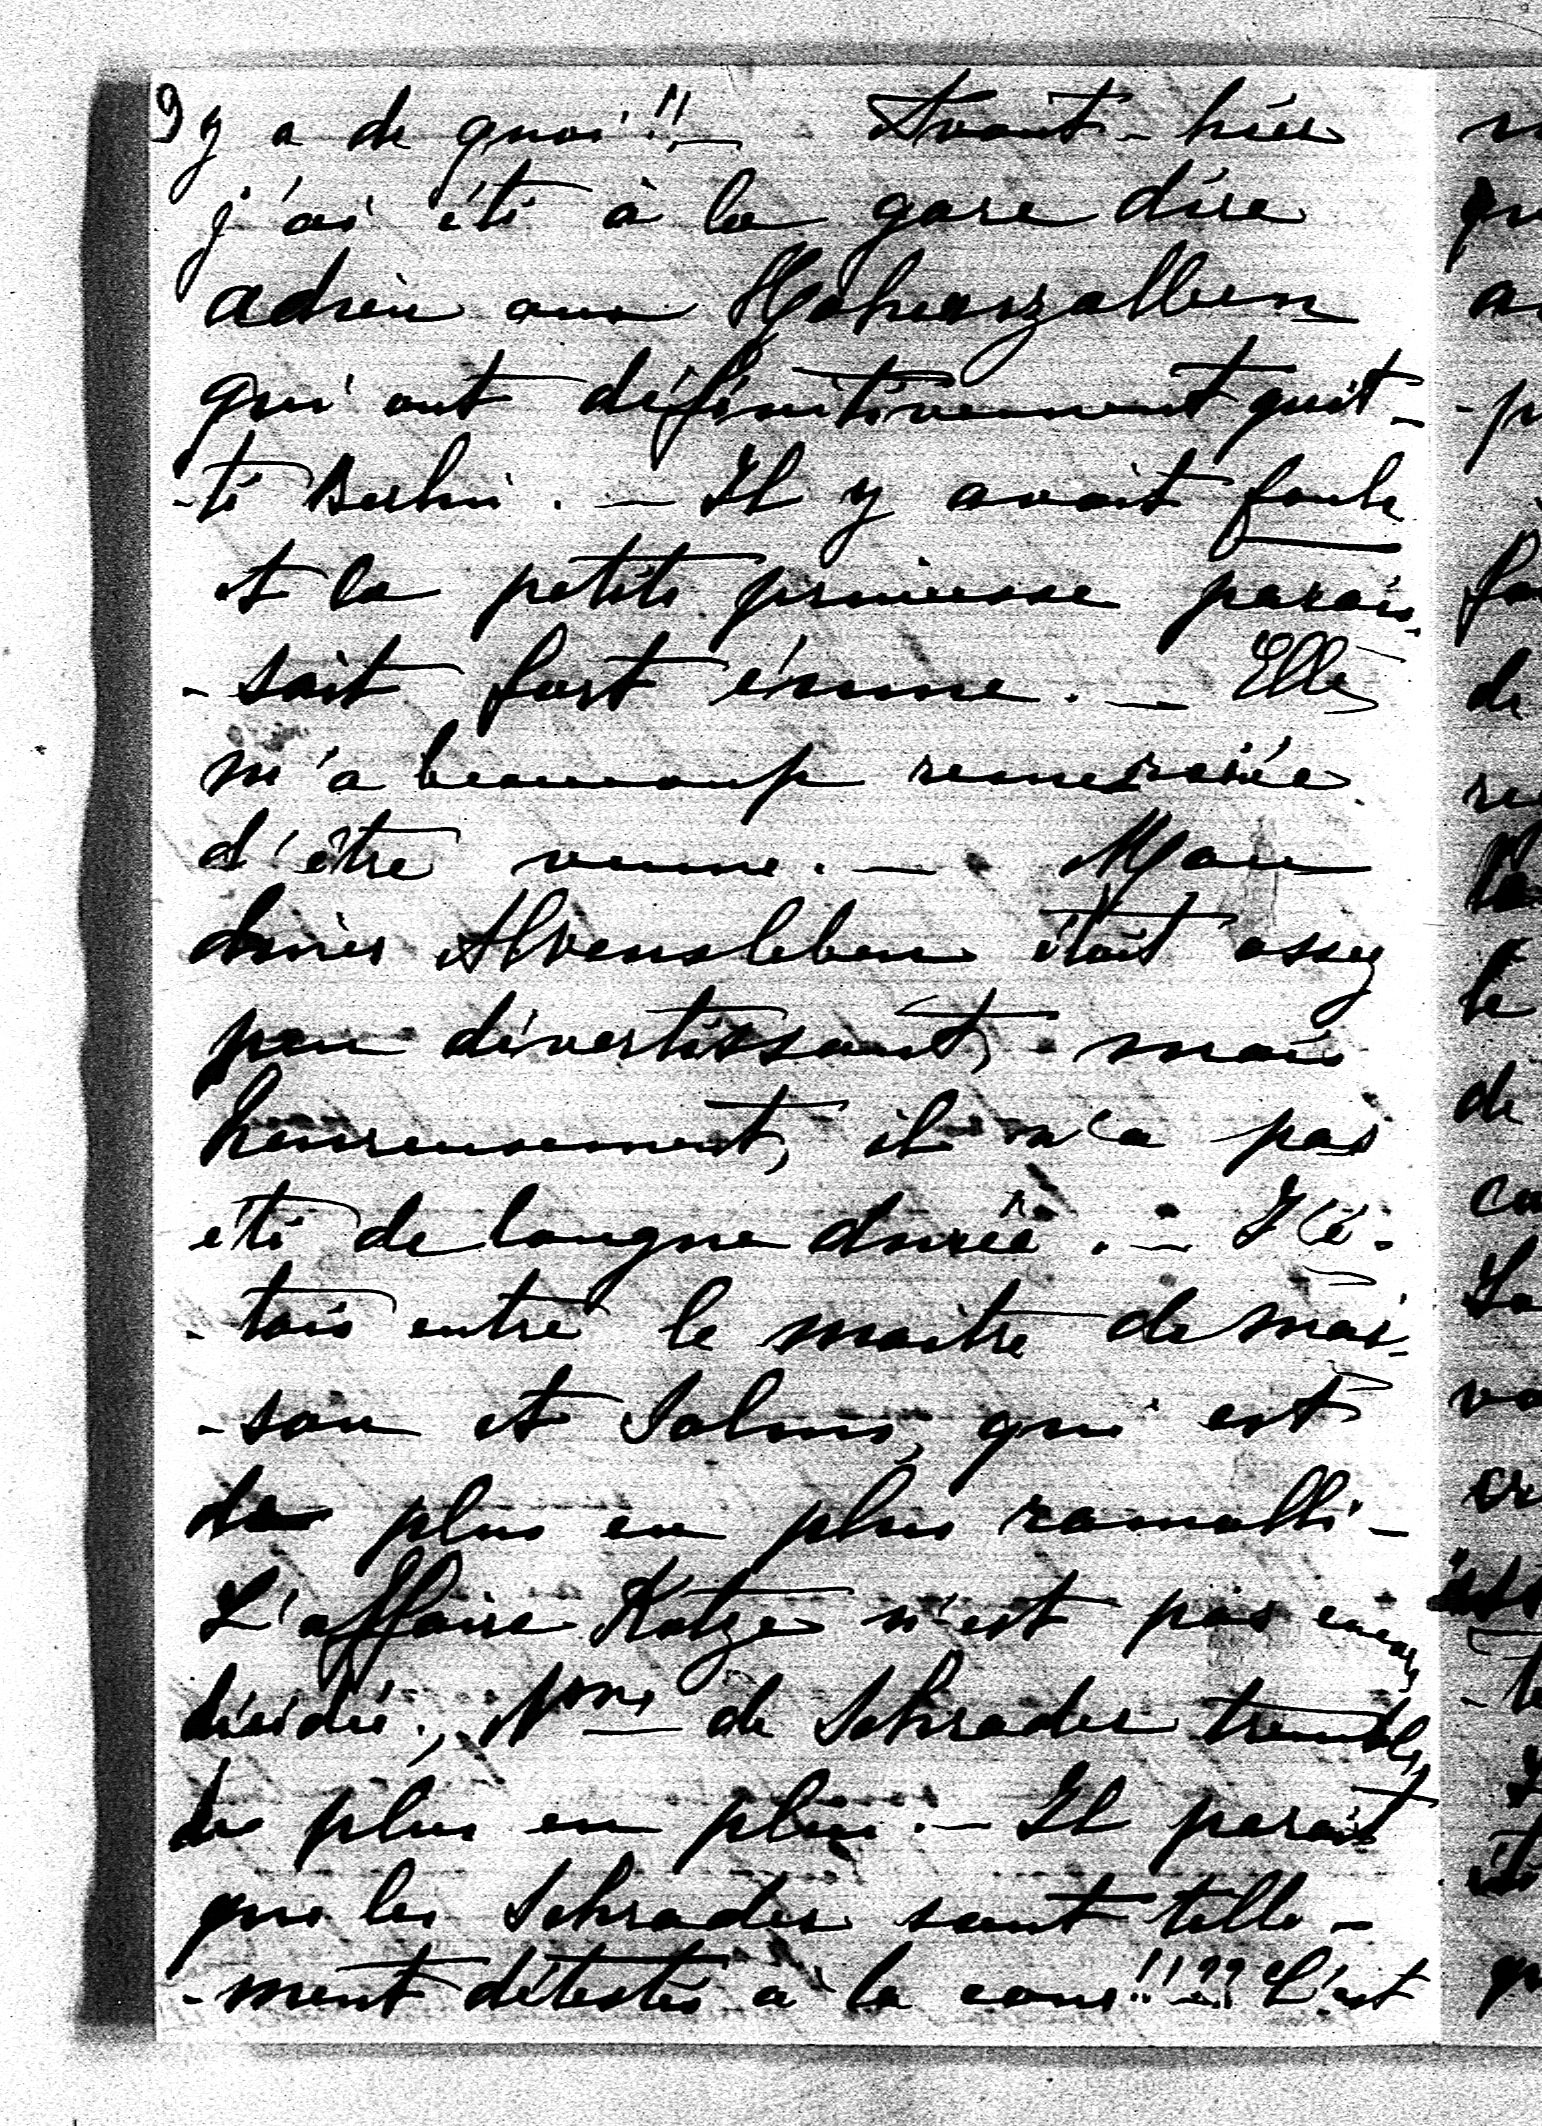 9 y a de quoi!! — Avant-hier
j'ai été à la gare dire
adieu aux Hohenzollern
qui ont définitivement quit-
-té Berlin. — Il y avait foule
et la petite princesse parais-
-sait fort émue. — Elle
m'a beaucoup remerciée
d'être venue. — Mon
diner Alvensleben était assez
peu divertissant, mais
heureusement, il n'a pas
été de longue durée. — J'é-
-tais entre le maitre de mai-
-son et Solms, qui est
de plus en plus ramolli —
L'affaire Kotze n'est pas encore
décidée, Mme de Schrader tremble
de plus en plus. — Il parait
que les Schrader sont telle-
-ment détestés à la cour!!?? C'est